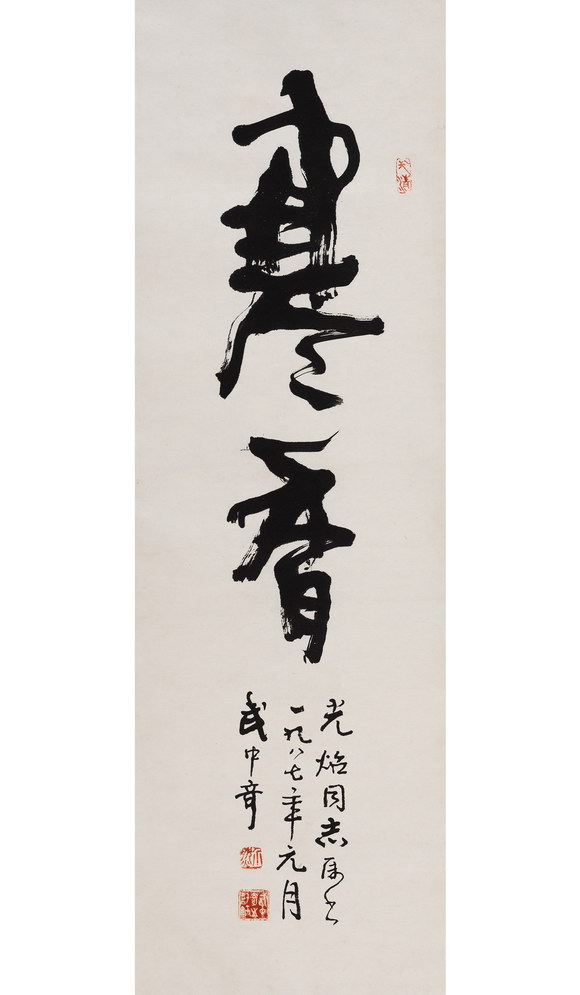 寒香
光焰同志属书
一九八七年元月
武中奇